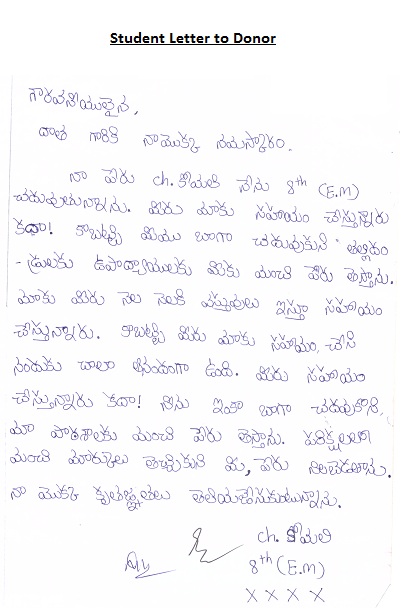 Student Letter to Donor
గౌరవనీయులైన,
దాత గారికి నాయొక్క నమస్కారం.
నా పేరు ch. కోమలి నేను 8th (E.M)
చదువుతున్నాను. మీరు మాకు సహాయం చేస్తున్నారు
కదా! కాబట్టి మేము బాగా చదువుకుని తల్లిదం
-డ్రులకు ఉపాధ్యాయులకు మీకు మంచి పేరు తెస్తాను.
మాకు మీరు నెల నెలకి వస్తువులు ఇస్తూ సహాయం
చేస్తున్నారు. కాబట్టి మీరు మాకు సహాయం, చేసి
నందుకు చాలా ఆనందంగా ఉంది. మీరు సహాయం
చేస్తున్నారు కదా! నేను ఇంకా బాగా చదువుకొని,
మా పాఠశాలకు మంచి పేరు తెస్తాను. పరిక్షలలో
మంచి మార్కులు తెచ్చుకుని మీ, పేరు నిలబెడతాను.
నా యొక్క కృతజ్ఞతలు తెలియజేసుకుంటున్నాను.
ch. కోమలి
8th (E.M)
X X X X